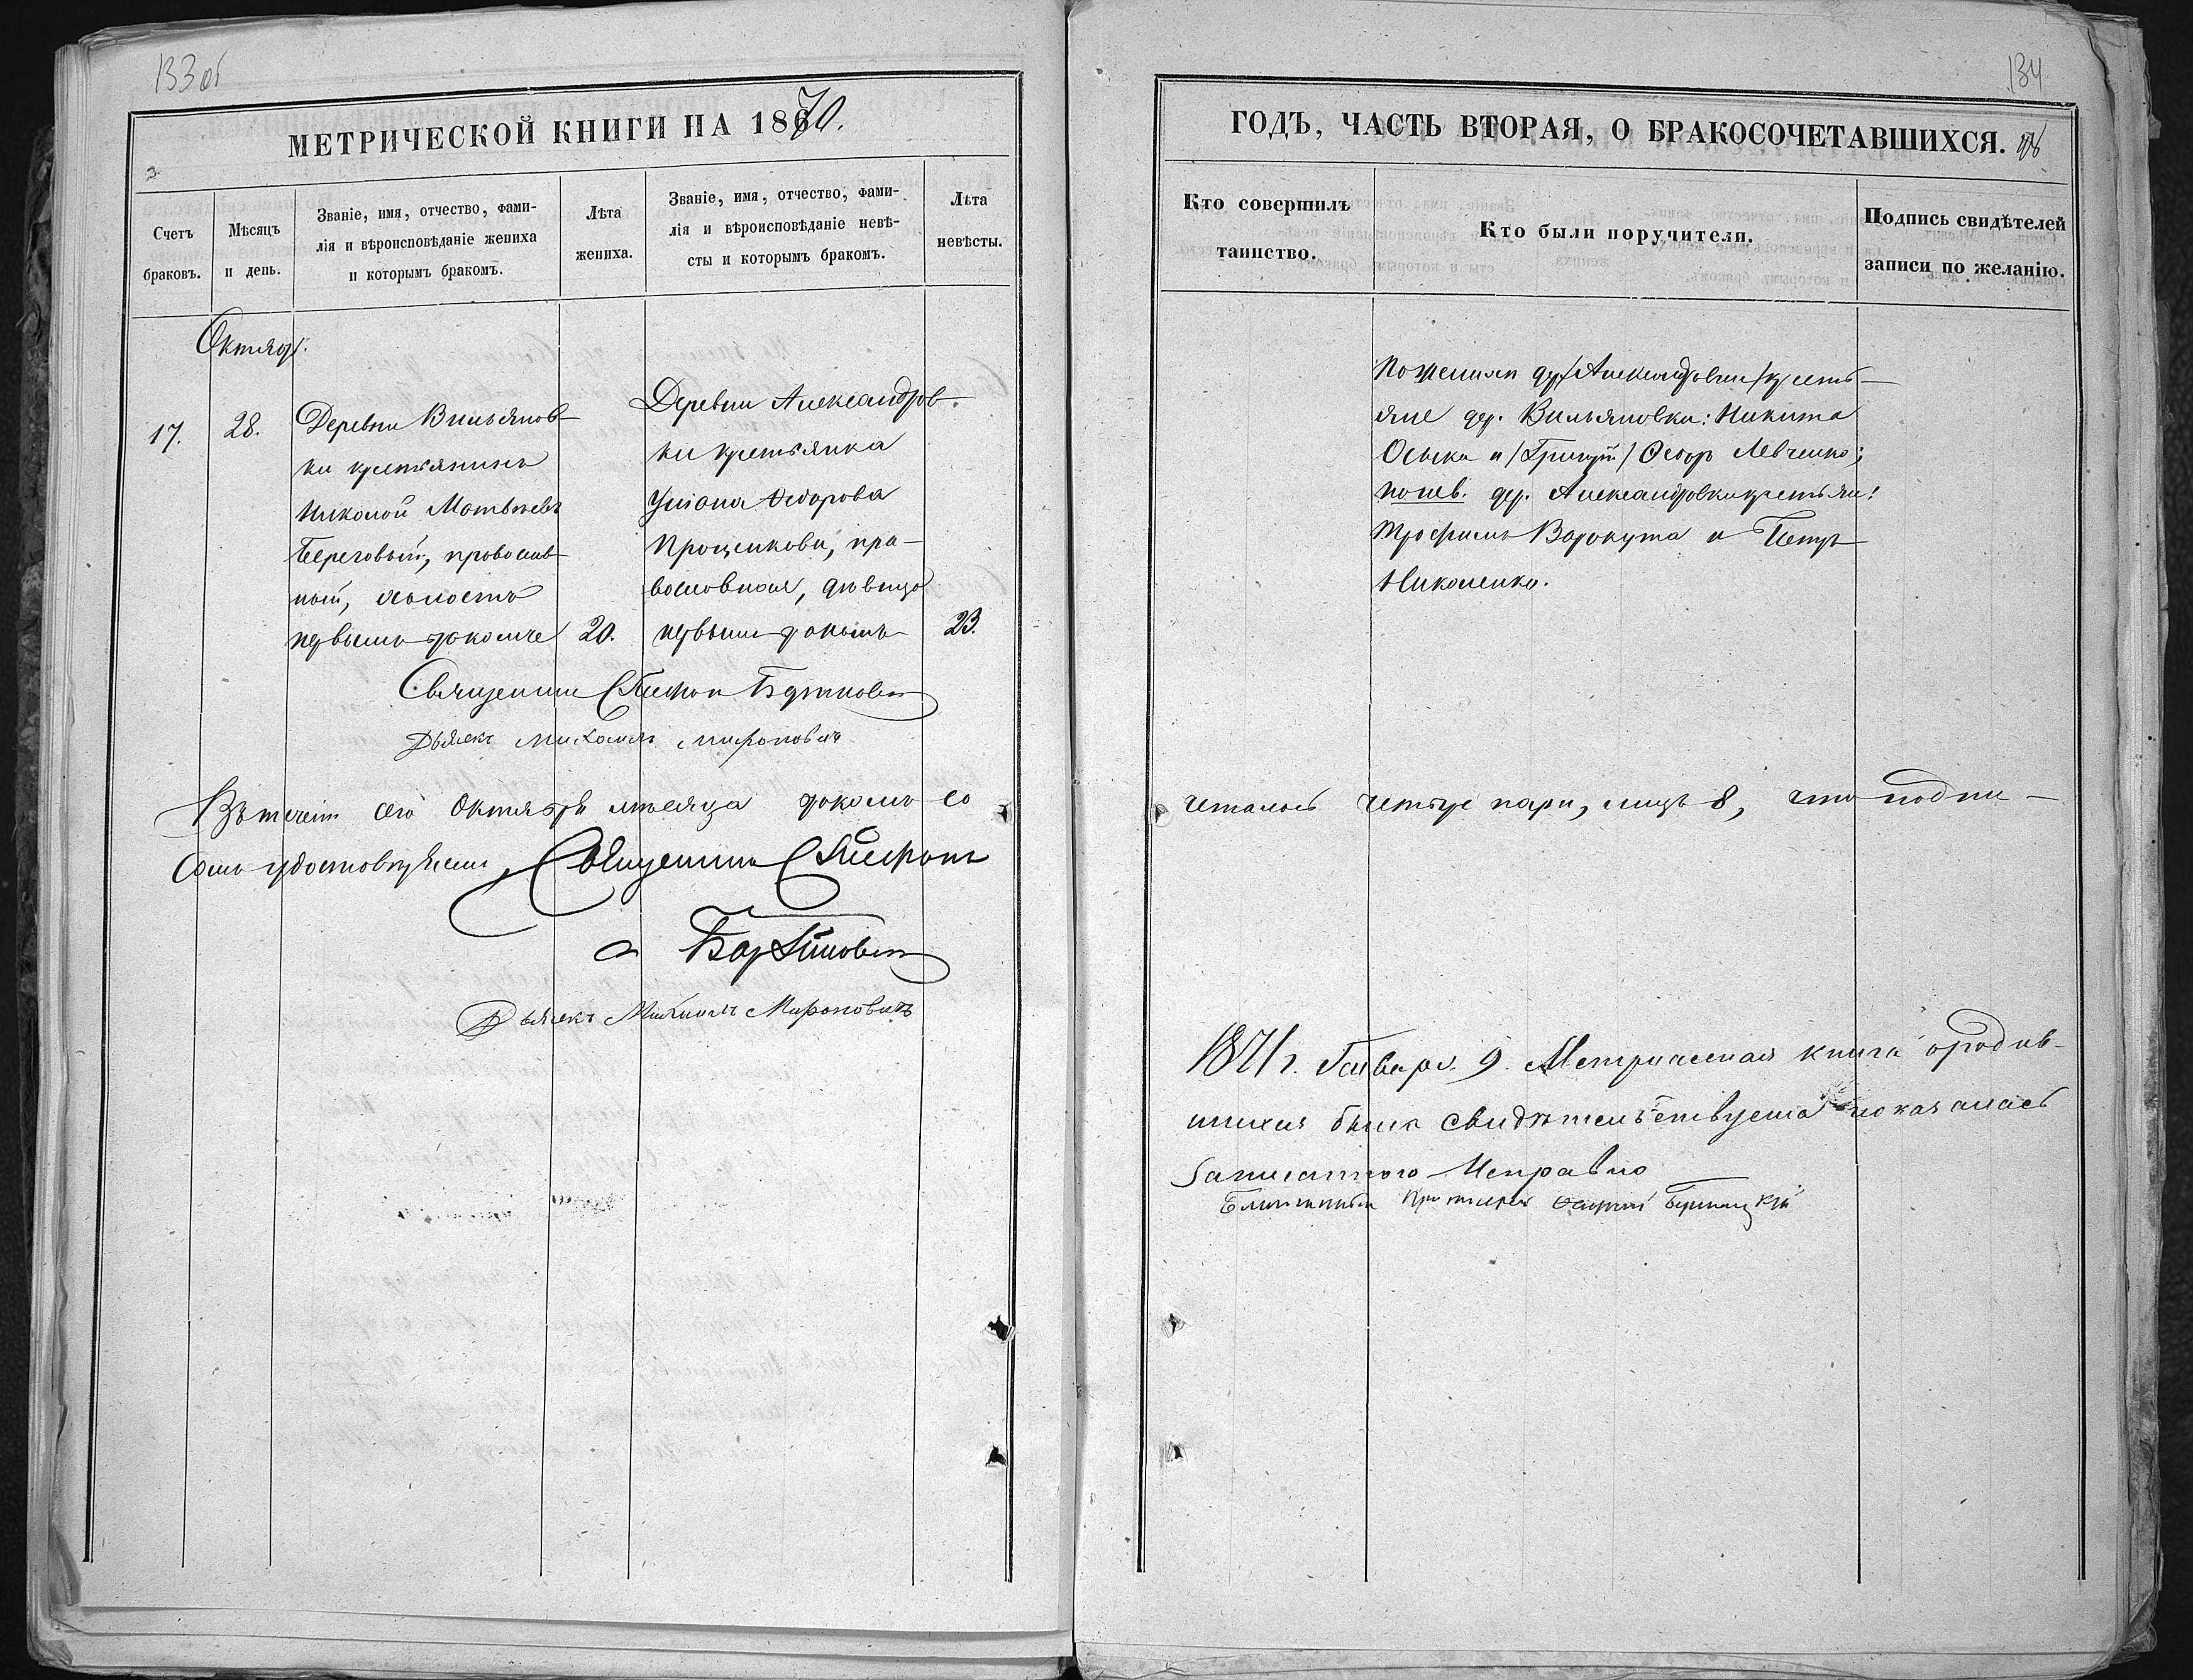 133 об
МЕТРИЧЕСКОЙ КНИГИ НА 1870.
Счетъ браковъ.
Мѣсяцъ и день.
Званіе, имя, отчество, фами-
лія и вѣроисповѣданіе жениха
и которымъ бракомъ.
Лѣта жениха.
Званіе, имя, отчество, фами-
лія и вѣроисповѣданіе невѣ-
сты и которымъ бракомъ.
Лѣта невѣсты.
Октябрь.
17.
28.
Деревни Вильянов-
ки крестьянинъ
Николай Матвѣевъ
Береговый, православ-
ный, холостъ
первымъ бракомъ
20.
Деревни Александров-
ки крестьянка
Уліана Ѳедорова
Проценкова, пра-
вославная, дѣвица
первымъ бракомъ
23.
Священникъ
Дьячекъ Михаилъ Мироновичъ
Въ теченіи сего Октября мѣсяца бракомъ со
самъ удостовѣряемъ, Священникъ
Дьячекъ Михаилъ Мироновичъ
134
ГОДЪ, ЧАСТЬ ВТОРАЯ, О БРАКОСОЧЕТАВШИХСЯ.
Кто совершилъ
таинство.
Кто были поручители.
Подпись свидѣтелей
записи по желанію.
По женихѣ дер. /Александровки/ кресть-
яне дер. Вильяновки: Никита
Оська и /Григорій/ Ѳедоръ Левченко;
по нев. дер. Александровки крестьян:
Трофимъ Ворокута и Петръ
Николенко.
четалось четыре пары, лицъ 8, что подпи-
1871 г. Января 9. Метрическая книга о родив-
шихся была свидѣтельствуема и оказалась
записанною Исправно
Протоіерей